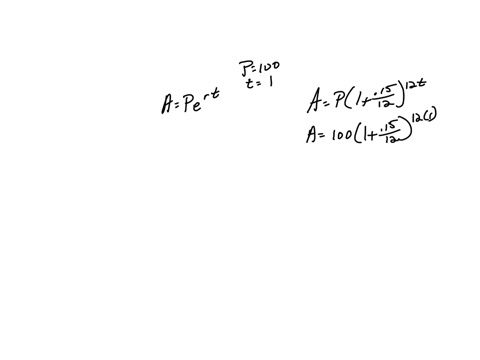 P=100
t=1
A=Pe^{rt}
A=P(1+\frac{.15}{12})^{12t}
A=100(1+\frac{.15}{12})^{12(1)}